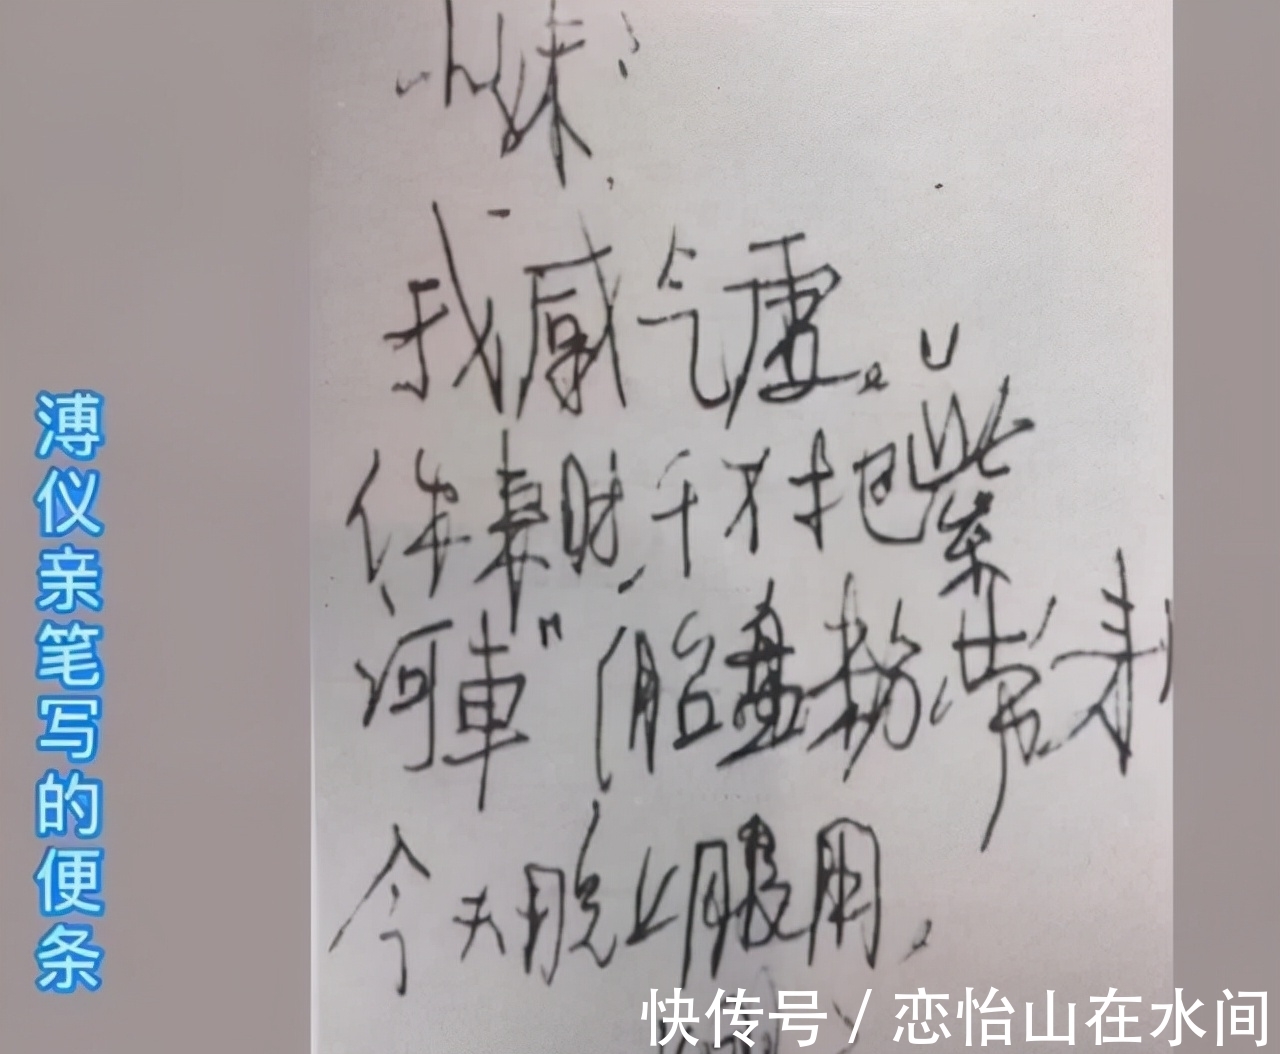 小妹：
我感气虚。
你来时，千万把“紫
河車”（胎盘粉，带来）
今天晚上服用。
溥仪亲笔写的便条
快传号 / 恋怡山在水间